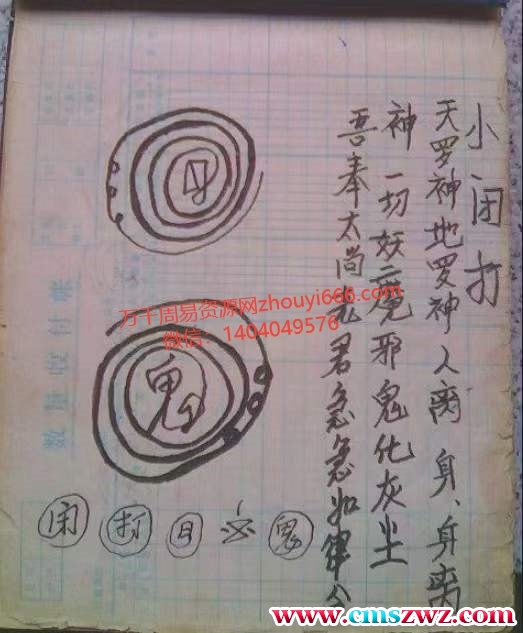 小闭打
天罗神地罗神人离身、身离
神一切妖二魔邪鬼化灰尘
吾奉太尚老君急急如律令
日
鬼
闭 打 日 鬼
数量收付帐
万千周易资源网zhouyi666.com
微信：1404049576
www.cmszwz.com